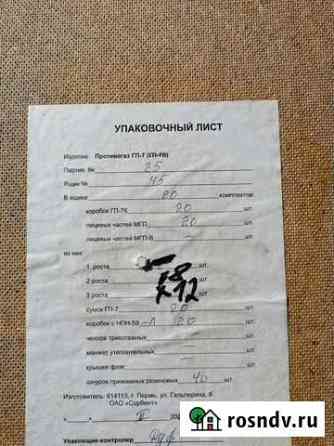 УПАКОВОЧНЫЙ ЛИСТ
Изделие Противогаз ГП-7 (ГП-7В)
Партия № 25
Ящик № 45
В ящике 20 комплектов
коробок ГП-7К 20 шт.
лицевых частей МГП 20 шт.
лицевых частей МГП-В шт.
из них:
1 роста шт.
2 роста 8 шт.
3 роста 12 шт.
сумок ГП-7 20 шт.
коробок с НПН-59 20 шт.
чехол трикотажный шт.
манжет утеплительных шт.
крышек фляг шт.
шнуров прижимных резиновых 40 шт.
Изготовитель 614113, г. Пермь, ул. Гальперина, 6
ОАО «Сорбент»
Упаковщик-контролер
rosndv.ru